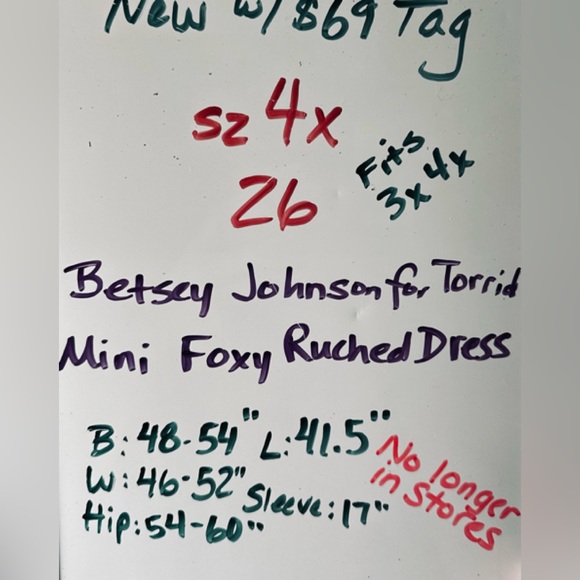 New w/ $69 Tag
sz 4x
26
Fits
3x 4x
Betsey Johnson for Torrid
Mini Foxy Ruched Dress
B: 48-54" L: 41.5"
W: 46-52"
Sleeve: 17"
Hip: 54-60"
No longer
in Stores